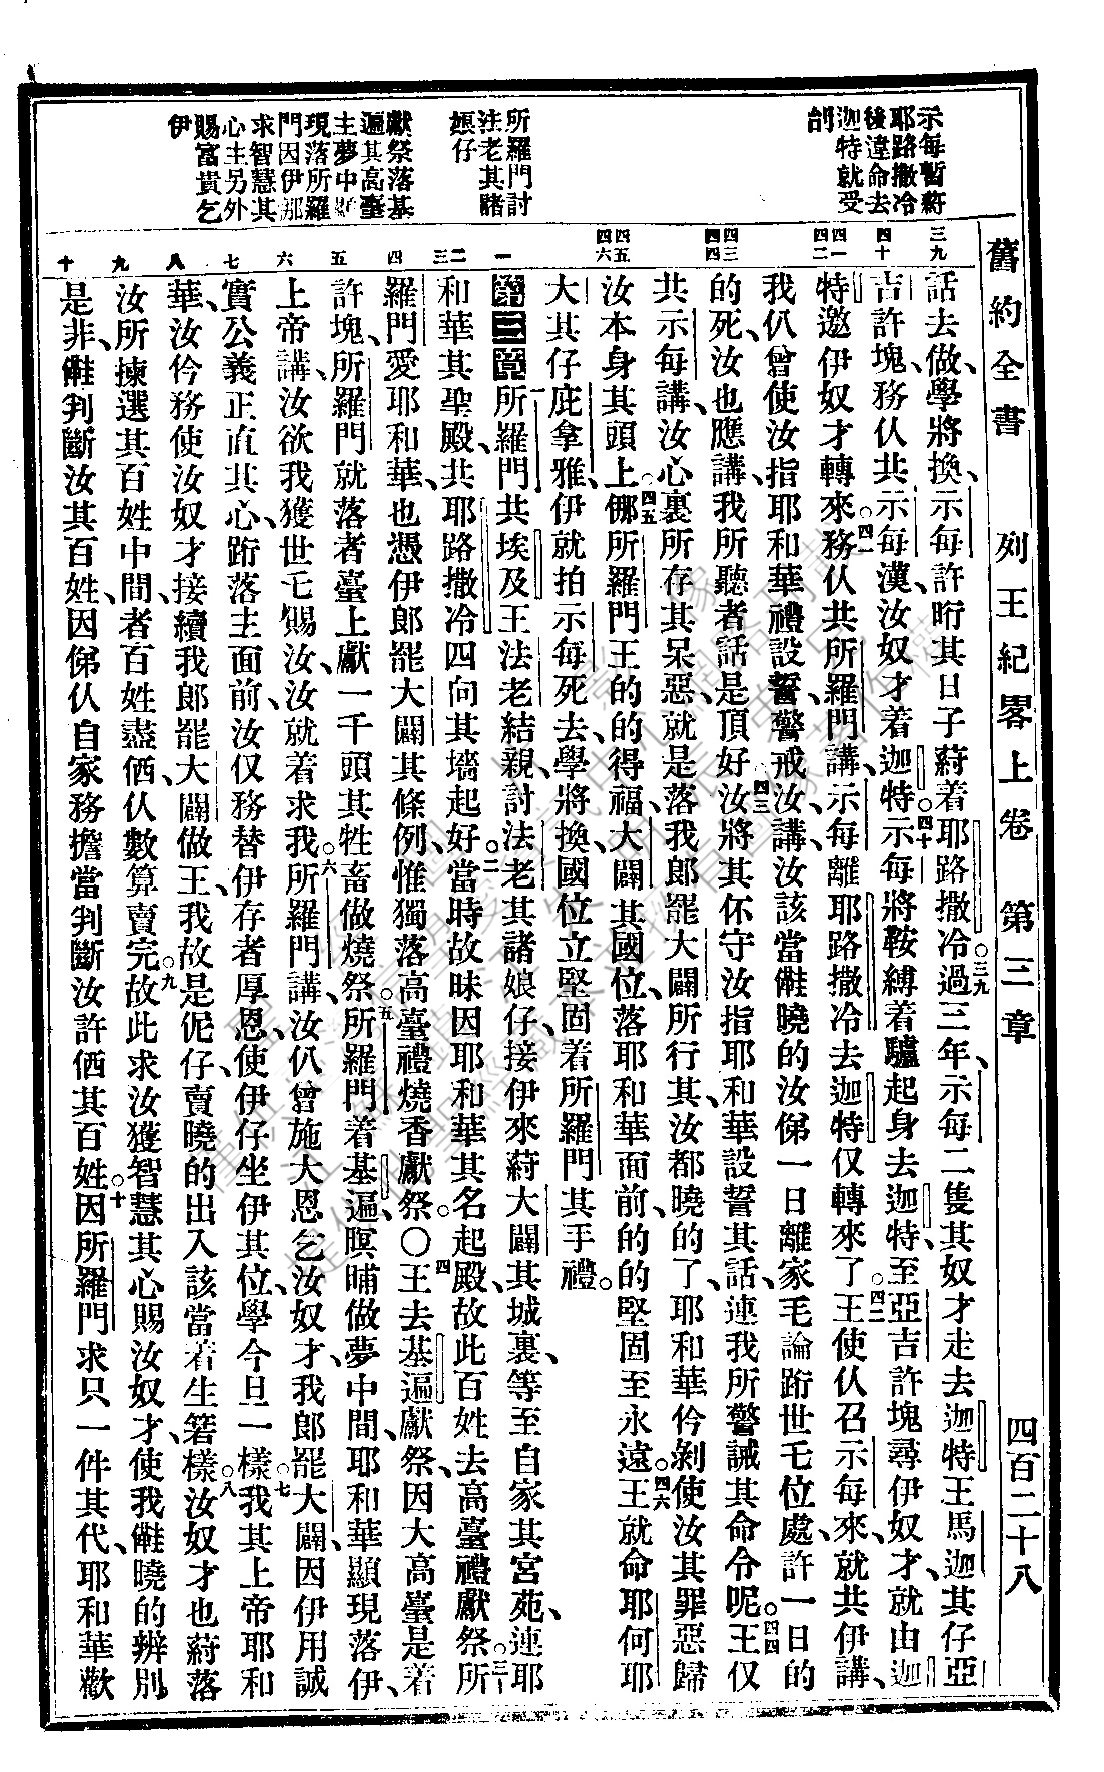 舊約全書 列王紀畧上卷 第三章 四百二十八
示每暫蒶
耶路撒冷
後違命去
迦特就受
刣
所羅門討
法老其諸
娘仔
獻祭落基
遍其高臺
主夢中顯
現落所羅
門因伊那
求智慧其
心主另外
賜富貴乞
伊
三九 四十 四一 四二 四三 四四 四五 四六 一 二 三 四 五 六 七 八 九 十
話去做、學將換、示每許昕其日子蒶着耶路撒冷過○三九三年、示每二隻其奴才走去迦特王馬迦其仔亞
吉許塊、務仈共示每漢、汝奴才着迦特○四十示每將鞍縛着驢起身去迦特、至亞吉許塊尋伊奴才、就由迦
特邀伊奴才轉來○四一務仈共所羅門講、示每離耶路撒冷去迦特仅轉來了○四二王使仈召示每來就共伊講、
我仈曾使汝指耶和華禮設誓、警戒汝、講、汝該當㒁曉的汝俤一日離家毛論跨世乇位處、許一日的
的死、汝也應講、我所聽者話是頂好○四三汝將其伓守汝指耶和華設誓其話、連我所警誡其命令呢○四四王仅
共示每講、汝心裏所存其呆惡、就是落我郎罷大闢所行其、汝都曉的了、耶和華仱剝使汝其罪惡歸
汝本身其頭上○四五㑚所羅門王的的得福、大闢其國位、落耶和華面前的的堅固至永遠○四六王就命耶何耶
大其仔庇拿雅、伊就拍示每死去、學將換、國位立堅固着所羅門其手禮○
第三章 所羅門共埃及王法老結親、討法老其諸娘仔、接伊來蒶大闢其城裏、等至自家其宮苑、連耶
和華其聖殿、共耶路撒冷四向其墻起好○二當時故昧因耶和華其名起殿、故此百姓去高臺禮獻祭○三所
羅門愛耶和華、也憑伊郎罷大闢其條例、惟獨落高臺禮燒香獻祭○四○王去基遍獻祭、因大高臺是着
許塊、所羅門就落者臺上獻一千頭其牲畜做燒祭○五所羅門着基遍、暝晡做夢中間、耶和華顯現落伊、
上帝講、汝欲我獲世乇賜汝、汝就着求我○六所羅門講、汝仈曾施大恩乞汝奴才、我郎罷大闢、因伊用誠
實公義正直其心、跨落主面前、汝仅務替伊存者厚恩、使伊仔坐伊其位、學今旦一樣○七我其上帝耶和
華、汝仱務使汝奴才接續我郎罷大闢做王、我故是伲仔、賣曉的出入該當着生箬樣○八汝奴才也蒶落
汝所揀選其百姓中間、者百姓盡㑽、仈數算賣完○九故此求汝獲智慧其心賜汝奴才、使我㒁曉的辨別
是非、㒁判斷汝其百姓、因俤仈自家務擔當判斷汝許㑽其百姓○十因所羅門求只一件其代、耶和華歡